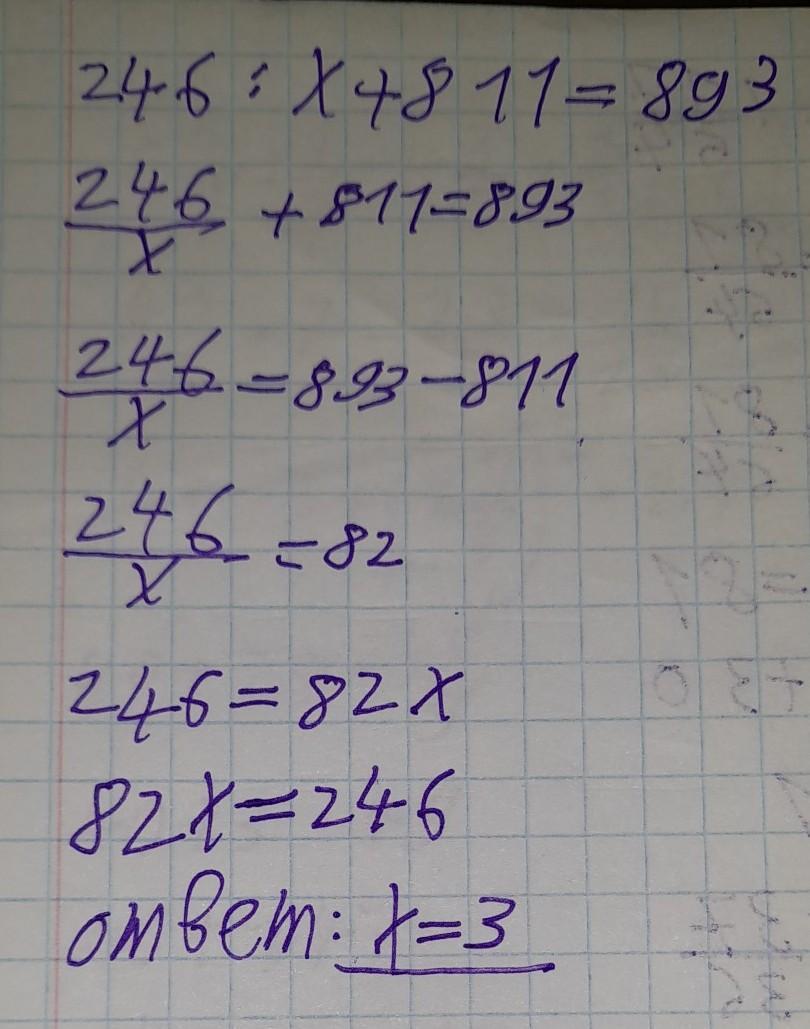 246 : x + 811 = 893
246/x + 811 = 893
246/x = 893 - 811
246/x = 82
246 = 82x
82x = 246
ответ: x = 3